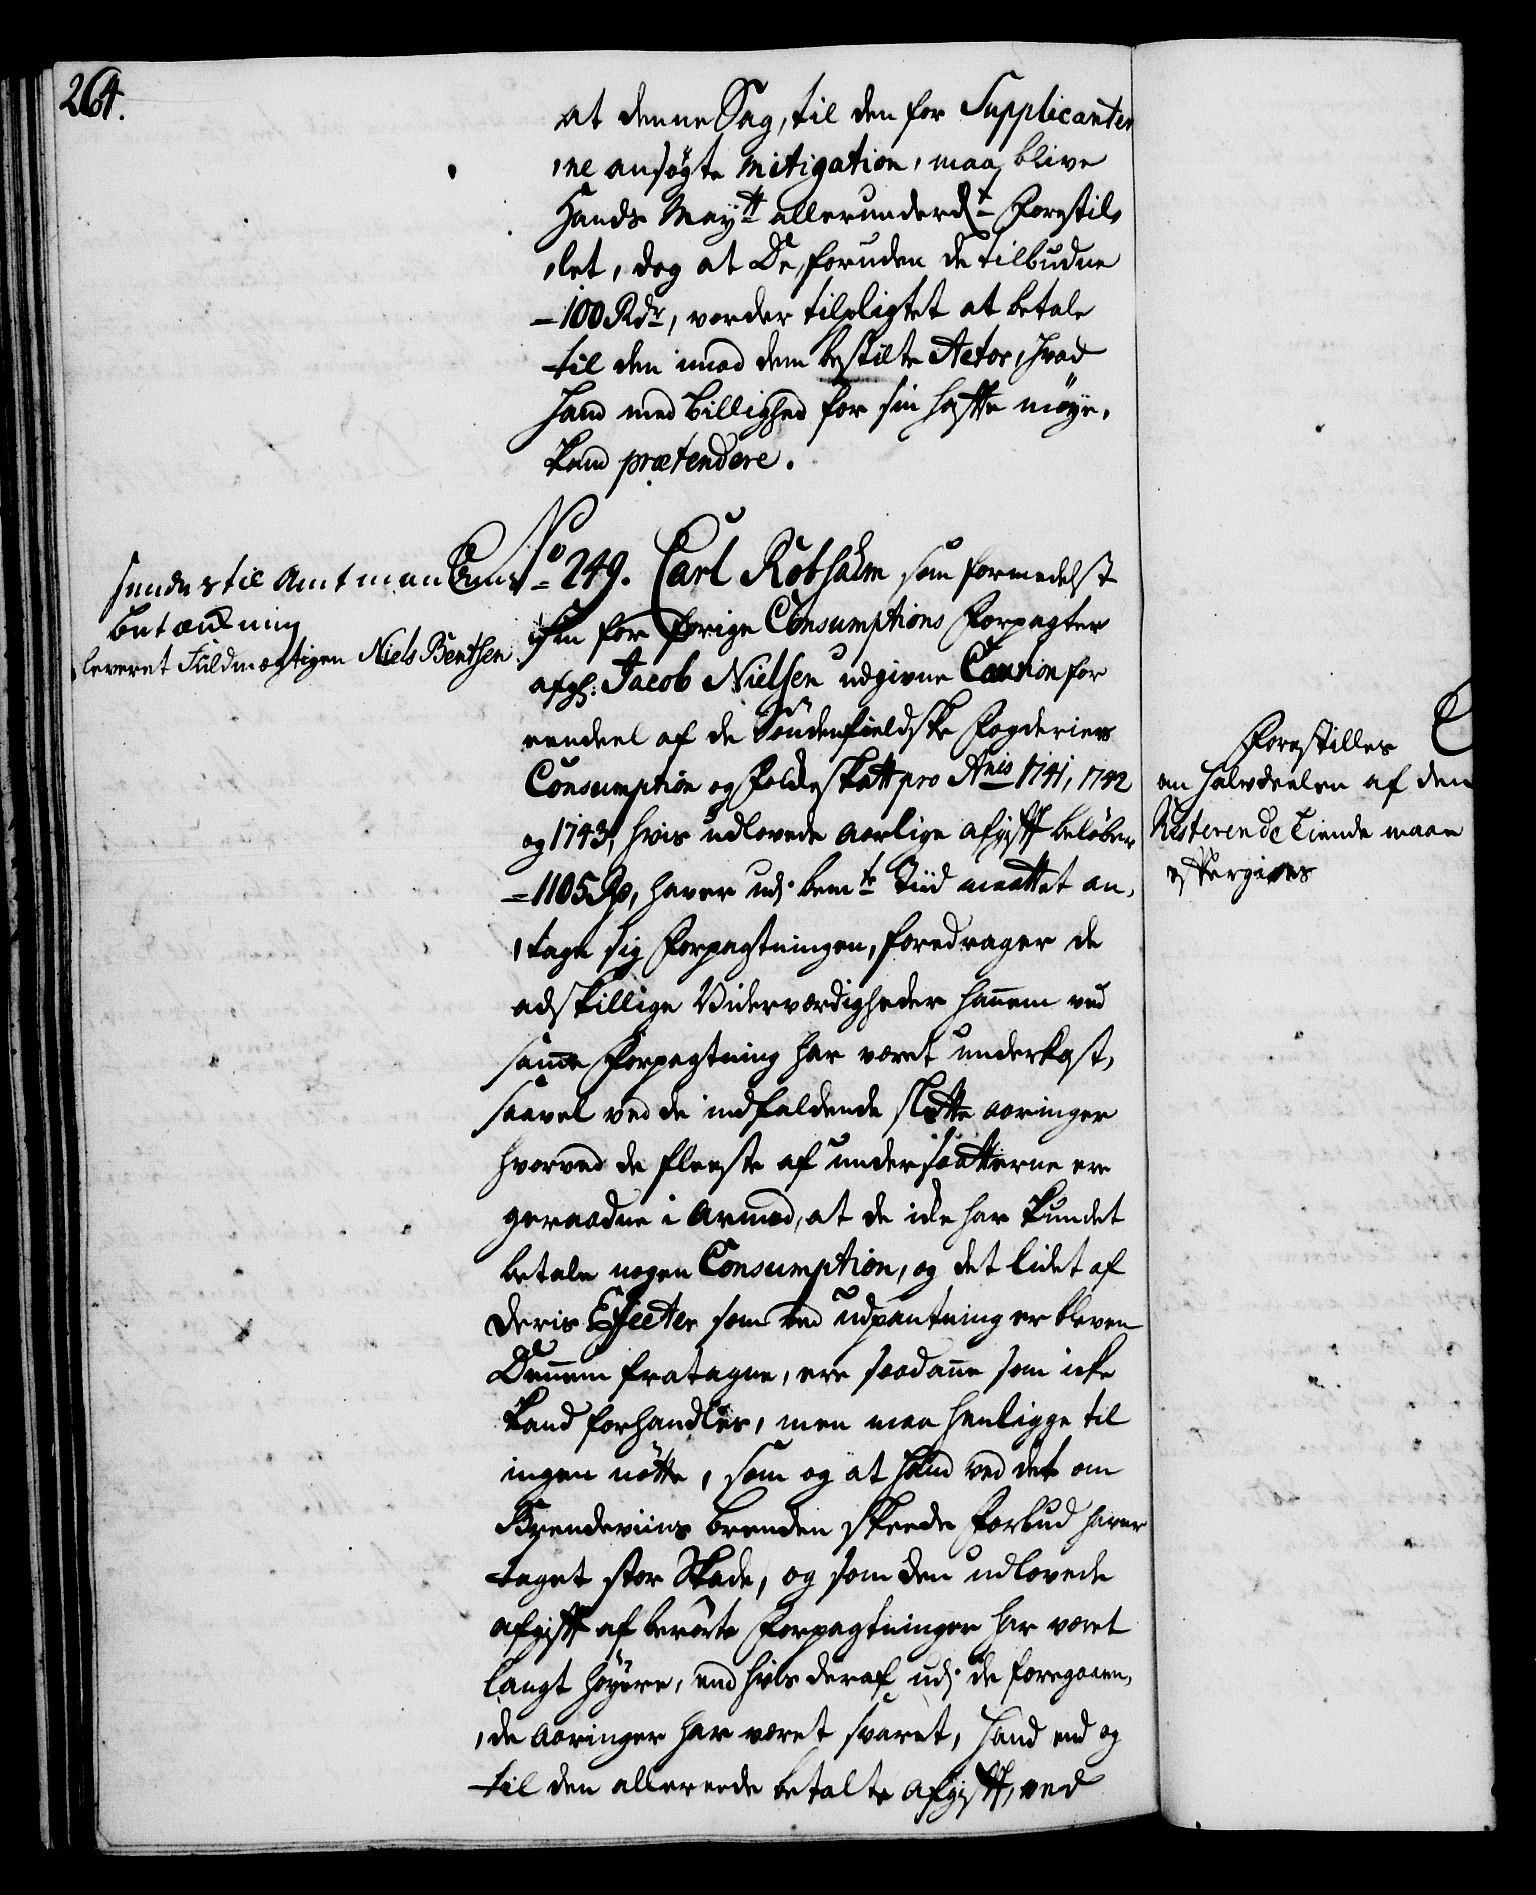 264.
at denne Sag, til den for Supplicanter
ne ansögte Mitigation, maa blive
Hands Mayᵗᵗ allerunderdᵗ Forestil,
let, dog at De, foruden de tilbudne
100 Rdʳ, vorder tilpligtet at betale
til den imod dem bestilte Actor, hvad
Hand med Billighed for sin hafte möye,
Kand prætendere.
Sendes til Amtmandens
Betænkning
leveret Fuldmægtigen Niels Bentsen
No 249. Carl Robsahm som formedelst
sin for forige Consumptions Forpagter
afg: Jacob Nielsen udgivne Caution for
eendeel af de Söndenfieldske Fogderiers
Consumption og Foldeskatt pro Anis 1741, 1742
og 1743, hvis udlovede aarlige afgifft belöber
1105 Rd, haver udj bemte Tiid maattet an,
tage sig Forpagtningen, foredrager de
adskillige Viderværdigheder hannem ved
samme Forpagtning har været underkast,
saavel ved de indfaldende slette aaringer
hvorved de fleeste af undersaatterne ere
geraadne i Armod, at de icke har kundet
betale nogen Consumption, og det lidet af
Deris Effecter som ved udpantning er bleven
Dennem fratagne, ere saadanne som icke
kand forhandles, men maa henligge til
ingen nötte, som og at hand ved det om
Brendeviins brenden skeede Forbud haver
taget stor Skade, og som den udlovede
afgifft af berörte Forpagtninger har været
langt höyere, end hvis deraf udj de foregaaen,
de aaringer har været svaret, hand end og
til den allerede betalte afgifft, ved
Forestilles
en halvdeelen af den
Resterende Tiende maae
eftergives